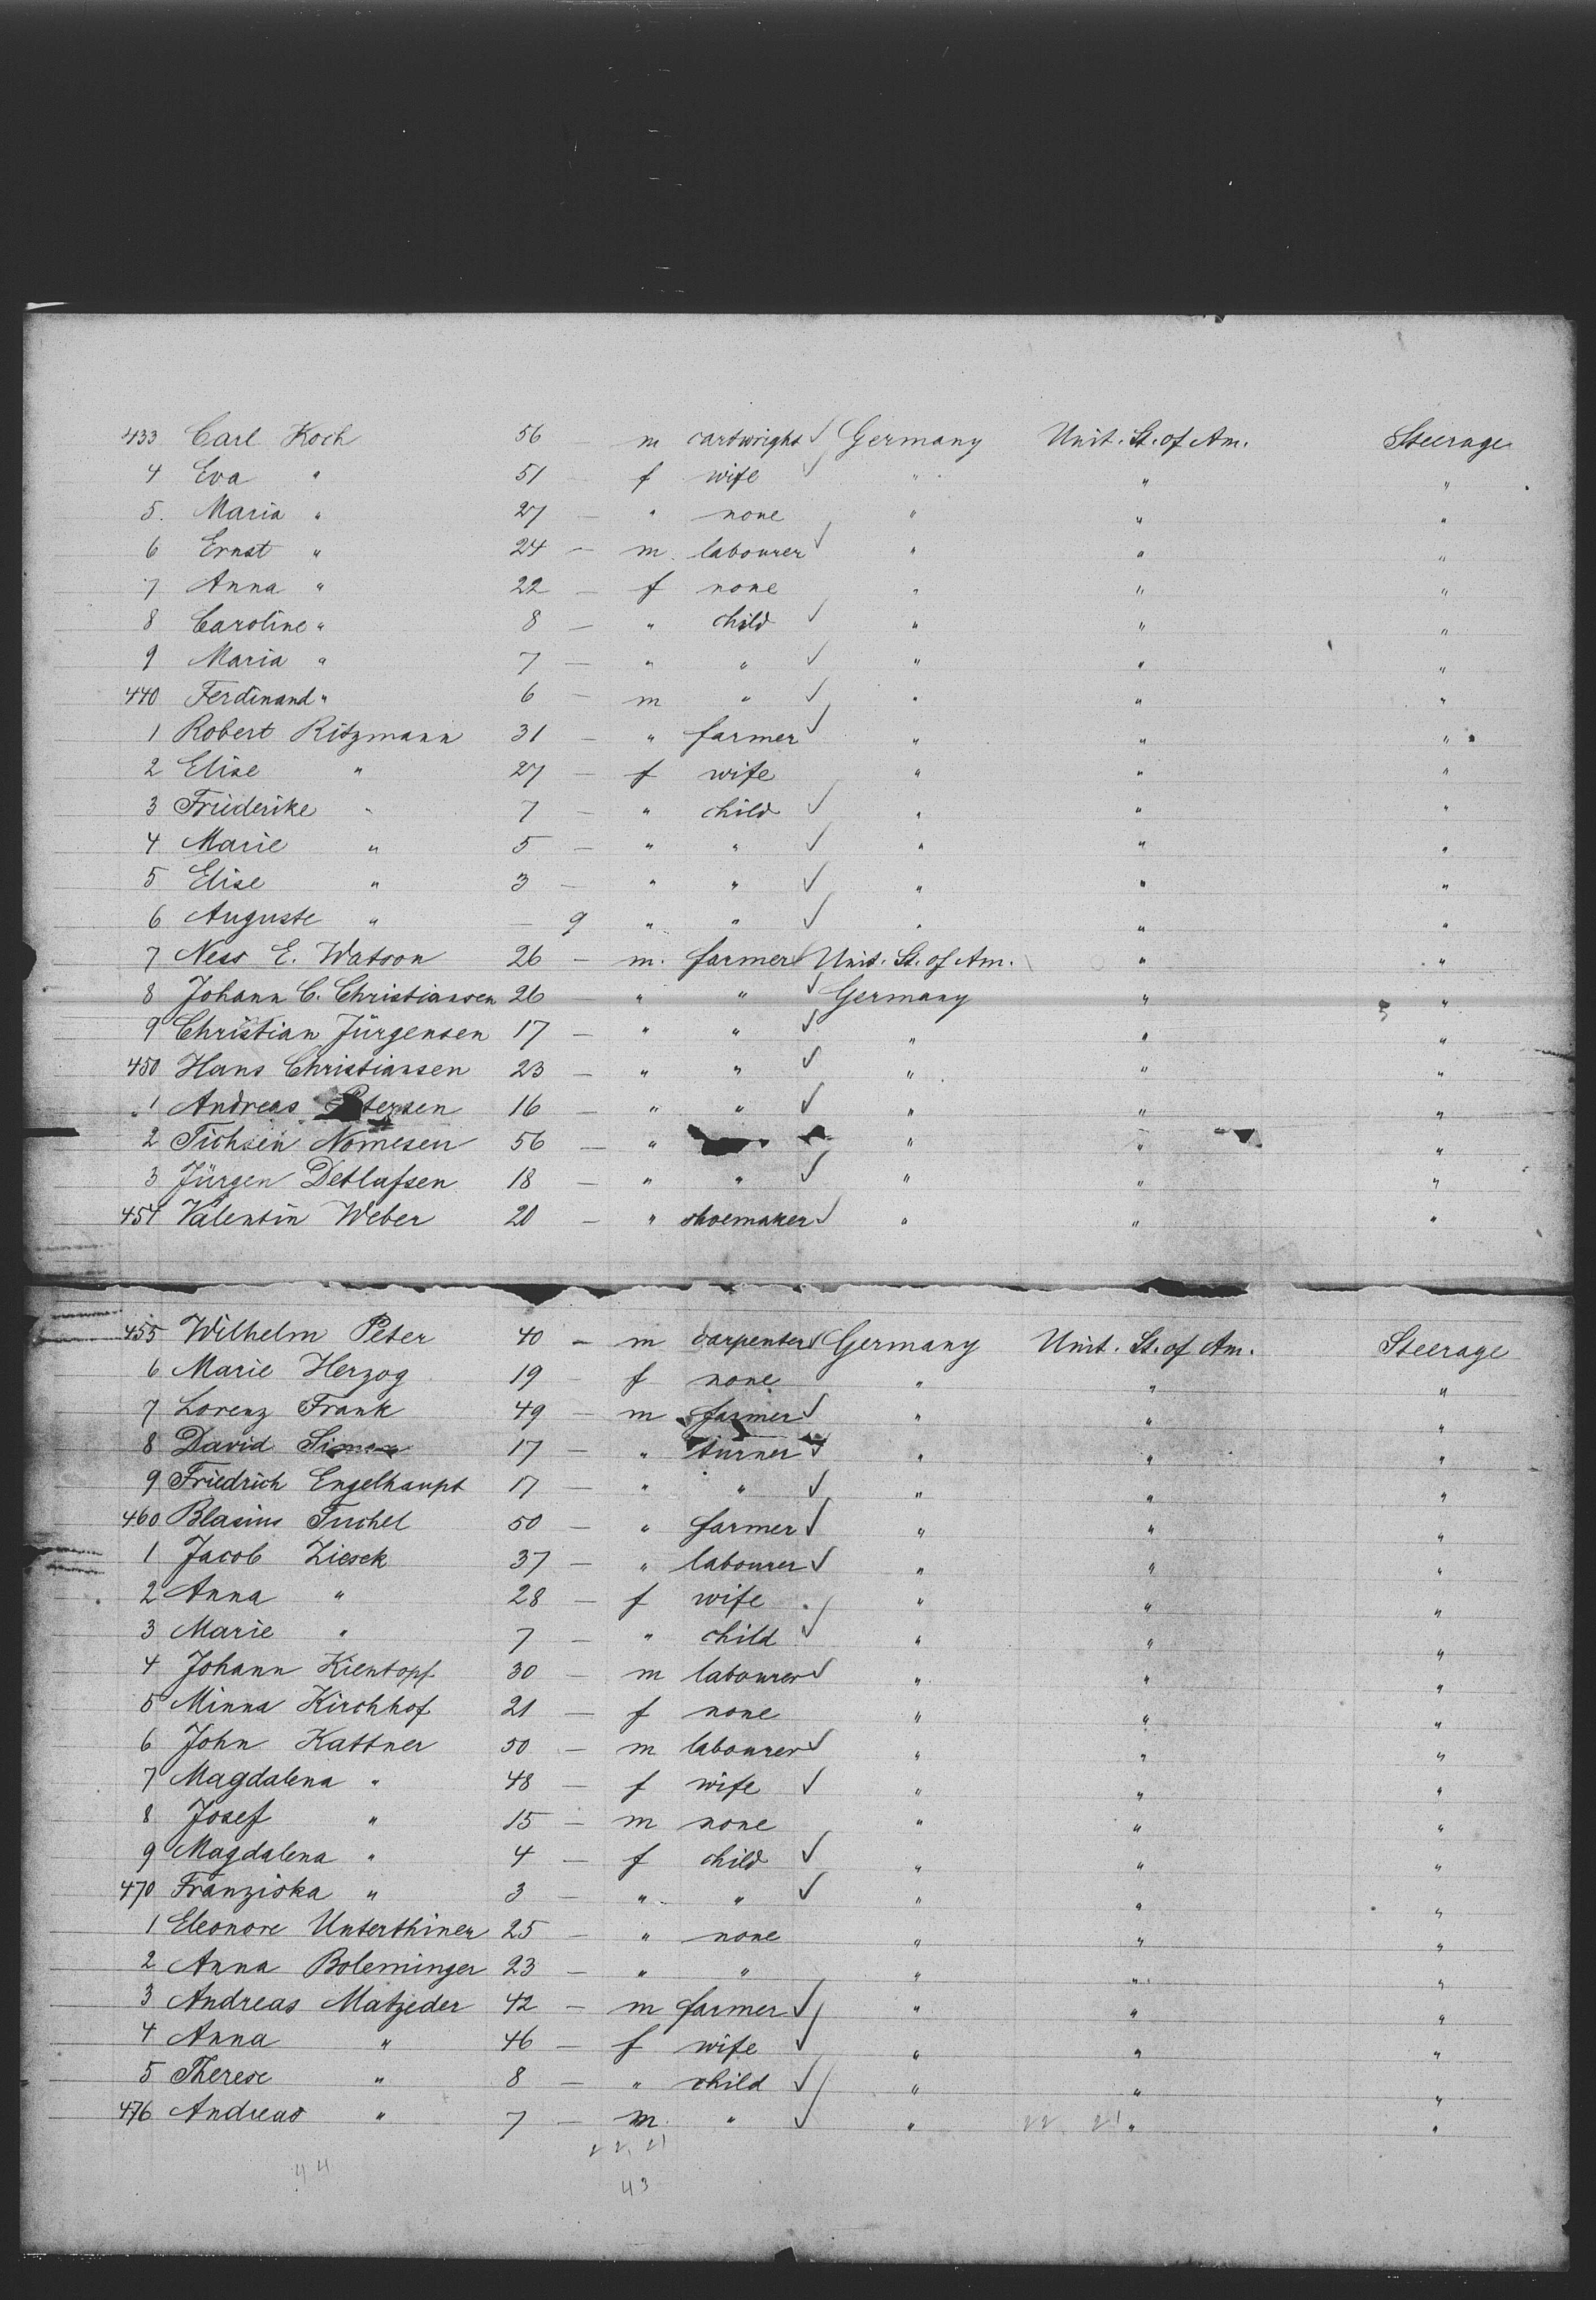 433 Carl Koch 56 — m cartwright ✓ Germany Unit. St. of Am. Steerage
4 Eva " 51 — f wife ✓ " " "
5. Maria " 27 — " none " " "
6 Ernst " 24 — m. labourer ✓ " " "
7 Anna " 22 — f none " " "
8 Caroline " 8 — " child ✓ " " "
9 Maria " 7 — " " ✓ " " "
440 Ferdinand " 6 — m " ✓ " " "
1 Robert Ritzmann 31 — " farmer ✓ " " "
2 Elise " 27 — f wife " " "
3 Friederike " 7 — " child ✓ " " "
4 Marie " 5 — " " ✓ " " "
5 Elise " 3 — " " ✓ " " "
6 Auguste " — 9 " " ✓ " " "
7 Ness E. Watson 26 — m. farmer ✓ Unit. St. of Am. " "
8 Johann C. Christiansen 26 — " " ✓ Germany " "
9 Christian Jürgensen 17 — " " ✓ " " "
450 Hans Christiansen 23 — " " ✓ " " "
1 Andreas Petersen 16 — " " ✓ " " "
2 Nomesen 56 — " " " "
3 Jürgen Detlafsen 18 — " " ✓ " " "
454 Valentin Weber 20 — " shoemaker ✓ " " "
455 Wilhelm Peter 40 — m carpenter ✓ Germany Unit. St. of Am. Steerage
6 Marie Herzog 19 — f none " " "
7 Lorenz Frank 49 — m farmer ✓ " " "
8 David Simon 17 — " turner ✓ " " "
9 Friedrich Engelhaupt 17 — " " ✓ " " "
460 Blasius Tuchel 50 — " farmer ✓ " " "
1 Jacob Ziesek 37 — " labourer ✓ " " "
2 Anna " 28 — f wife " " "
3 Marie " 7 — " child ✓ " " "
4 Johann Kientopf 30 — m labourer ✓ " " "
5 Minna Kirchhof 21 — f none " " "
6 John Kattner 50 — m labourer ✓ " " "
7 Magdalena " 48 — f wife ✓ " " "
8 Josef " 15 — m none " " "
9 Magdalena " 4 — f child ✓ " " "
470 Franziska " 3 — " " ✓ " " "
1 Eleonore Unterthiner 25 — " none " " "
2 Anna Boleminger 23 — " " " " "
3 Andreas Matzeder 42 — m farmer ✓ " " "
4 Anna " 46 — f wife ✓ " " "
5 Therese " 8 — " child ✓ " " "
476 Andreas " 7 — m. " ✓ " 22. 21 " "
22. 21
44
43